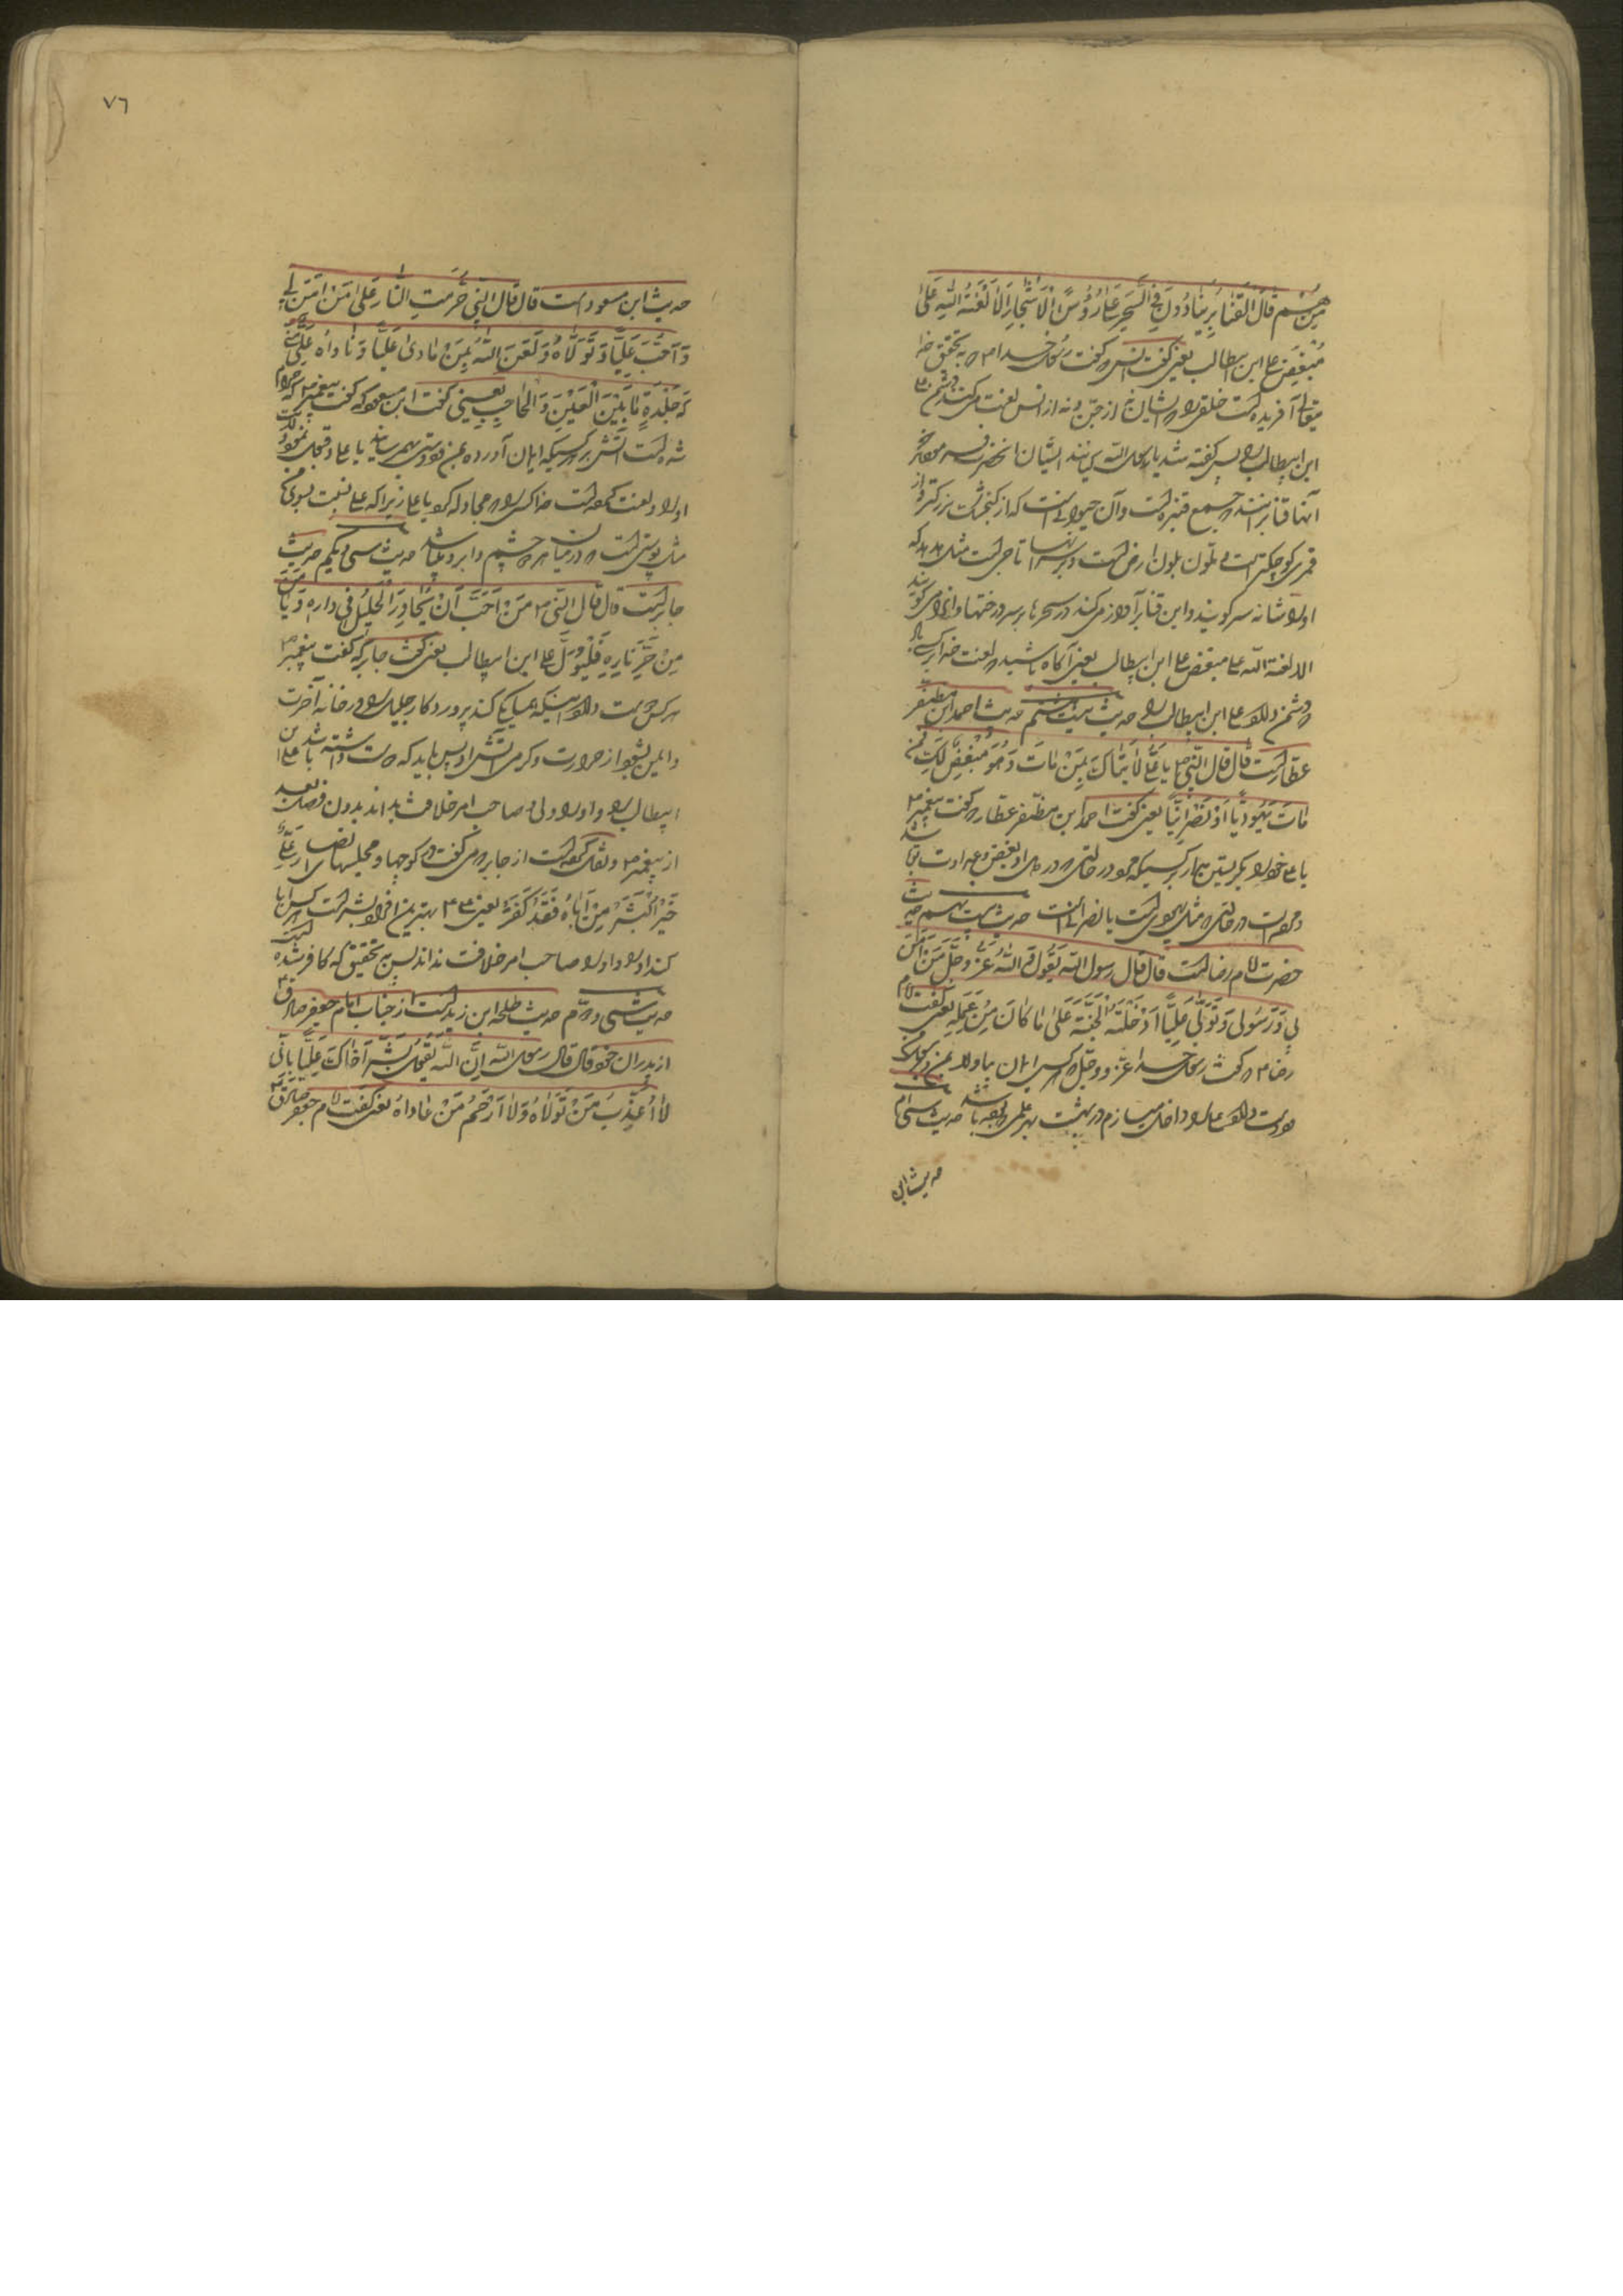 من هم قال القنابر ینادون فی السحر علی رؤس الاشجار الا لعنة الله علی
مبغض علی ابن ابیطالب یعنی گفت انس که گفت رسول خدا ص که به تحقیق خدا
آفریده است خلقی را که ایشان نه از جن و نه از انس لعنت میکنند دشمن
ابن ابیطالب را پس گفته شد یا رسول الله ایشان
آنها قنابرند جمع قنبره است و آن حیوانی است که از گنجشک بزرگتر و از
قمری کوچکتر است متلون بلون ارض است و بر سر آنها تاجی است مثل هدهد که
او را شانه سر گویند و این قنابر آواز میکند در سحرها بر سر درختها و ندا می گویند
الا لعنة الله علی مبغض علی ابن ابیطالب یعنی آگاه باشید که لعنت خدا بر کسی باد
که دشمن دارد علی ابن ابیطالب را حدیث بیست هشتم حدیث احمد ابن مظفر
عطار است قال قال النبی ص یا علی لا یماک بمن مات و هو مبغض لک فمن
مات یهودیا او نصرانیا یعنی گفت احمد ابن مظفر عطار که گفت پیغمبر ص
یا علی
در حالتی که مثل یهودی است یا نصرانی است حدیث بیست نهم حدیث
حضرت امام رضا است قال قال رسول الله یقول الله عز و جل من آمن
بی و رسولی و تولی علیا ادخلته الجنة علی ما کان من عمله یعنی گفت امام
رضا ع که گفت رسول خدا عز و جل هر کس ایمان بیاورد بمن و رسول من و
دوست دارد علی را داخل میسازم در بهشت بهر عملی که بوده باشد حدیث سی ام
حدیث ابن
٧٦
حدیث ابن مسعود است قال قال النبی حرمت النار علی من امن بی
و احب علیا و تولاه و لعن الله بمن مادی علیا و ناواه علی منی
کجلدة ما بین العین و الحاجب یعنی گفت ابن مسعود که گفت پیغمبر ص که حرام
شده است آتش بر هر کسیکه ایمان آورده بمن و دوستی بهمرساند با علی و قبول نمود
او را و لعنت کرده است خدا کسی را که مجادله کرد با علی زیرا که علی نسبت بسوی من
مثل پوستی است که در میان چشم و ابرو میباشد حدیث سی و یکم حدیث
جابر است قال قال النبی ص من احب ان یجاور الجلیل فی داره و یامن
من حر ناره فلیتول علی ابن ابیطالب یعنی گفت جابر که گفت پیغمبر ص
هر کس دوست دارد اینکه همسایگی کند پروردگار جلیل را در خانه آخرت
و ایمن بشود از حرارت و گرمی آتش او پس باید که دوست داشته باشد علی ابن
ابیطالب را و او را ولی و صاحب امر خلافت بداند بدون فصل بعد
از پیغمبر ص و نقل کرده است از جابر که می گفت در کوچها و مجلسهای انصار علی
خیر البشر من اباه فقد کفر یعنی علی ع بهترین افراد بشر است هر کس ابا
کند او را و او را صاحب امر خلافت نداند پس به تحقیق که کافر شده است
حدیث سی و دوم حدیث طلحه ابن زید است از جناب امام جعفر صادق ع
از پدران خود قال قال رسول الله ان الله یقول بشر اخاک علیا بانی
لا اعذب من تولاه و لا ارحم من عاداه یعنی گفت امام جعفر صادق ع